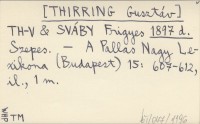 [THIRRING Gusztáv]
TH-V & SVÁBY Frigyes 1897 d.
Szepes. — A Pallas Nagy Le-
xikona (Budapest) 15: 607-612,
il., 1 m.
TM